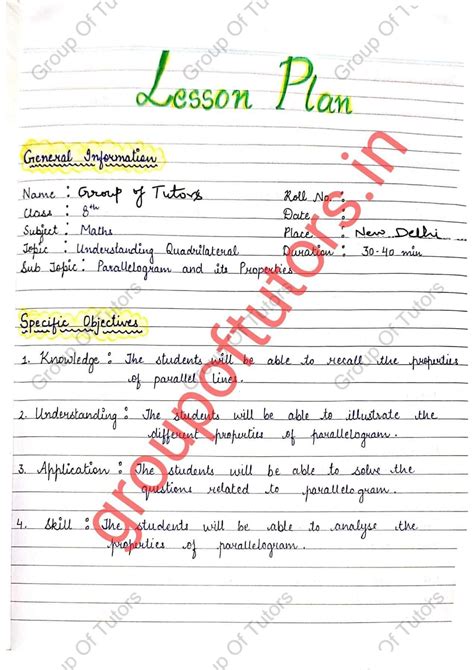 Lesson Plan
General Information
Name : Group of Tutors Roll No. :
Class : 8th Date :
Subject : Maths Place : New Delhi
Topic : Understanding Quadrilateral Duration : 30-40 min
Sub Topic : Parallelogram and its Properties
Specific Objectives
1. Knowledge : The students will be able to recall the properties
of parallel lines.
2. Understanding : The students will be able to illustrate the
different properties of parallelogram.
3. Application : The students will be able to solve the
questions related to parallelogram.
4. Skill : The students will be able to analyse the
properties of parallelogram.
groupoftutors.in
Group Of Tutors
Group Of Tutors
Group Of Tutors
Group Of Tutors
Group Of Tutors
Group Of Tutors
Group Of Tutors